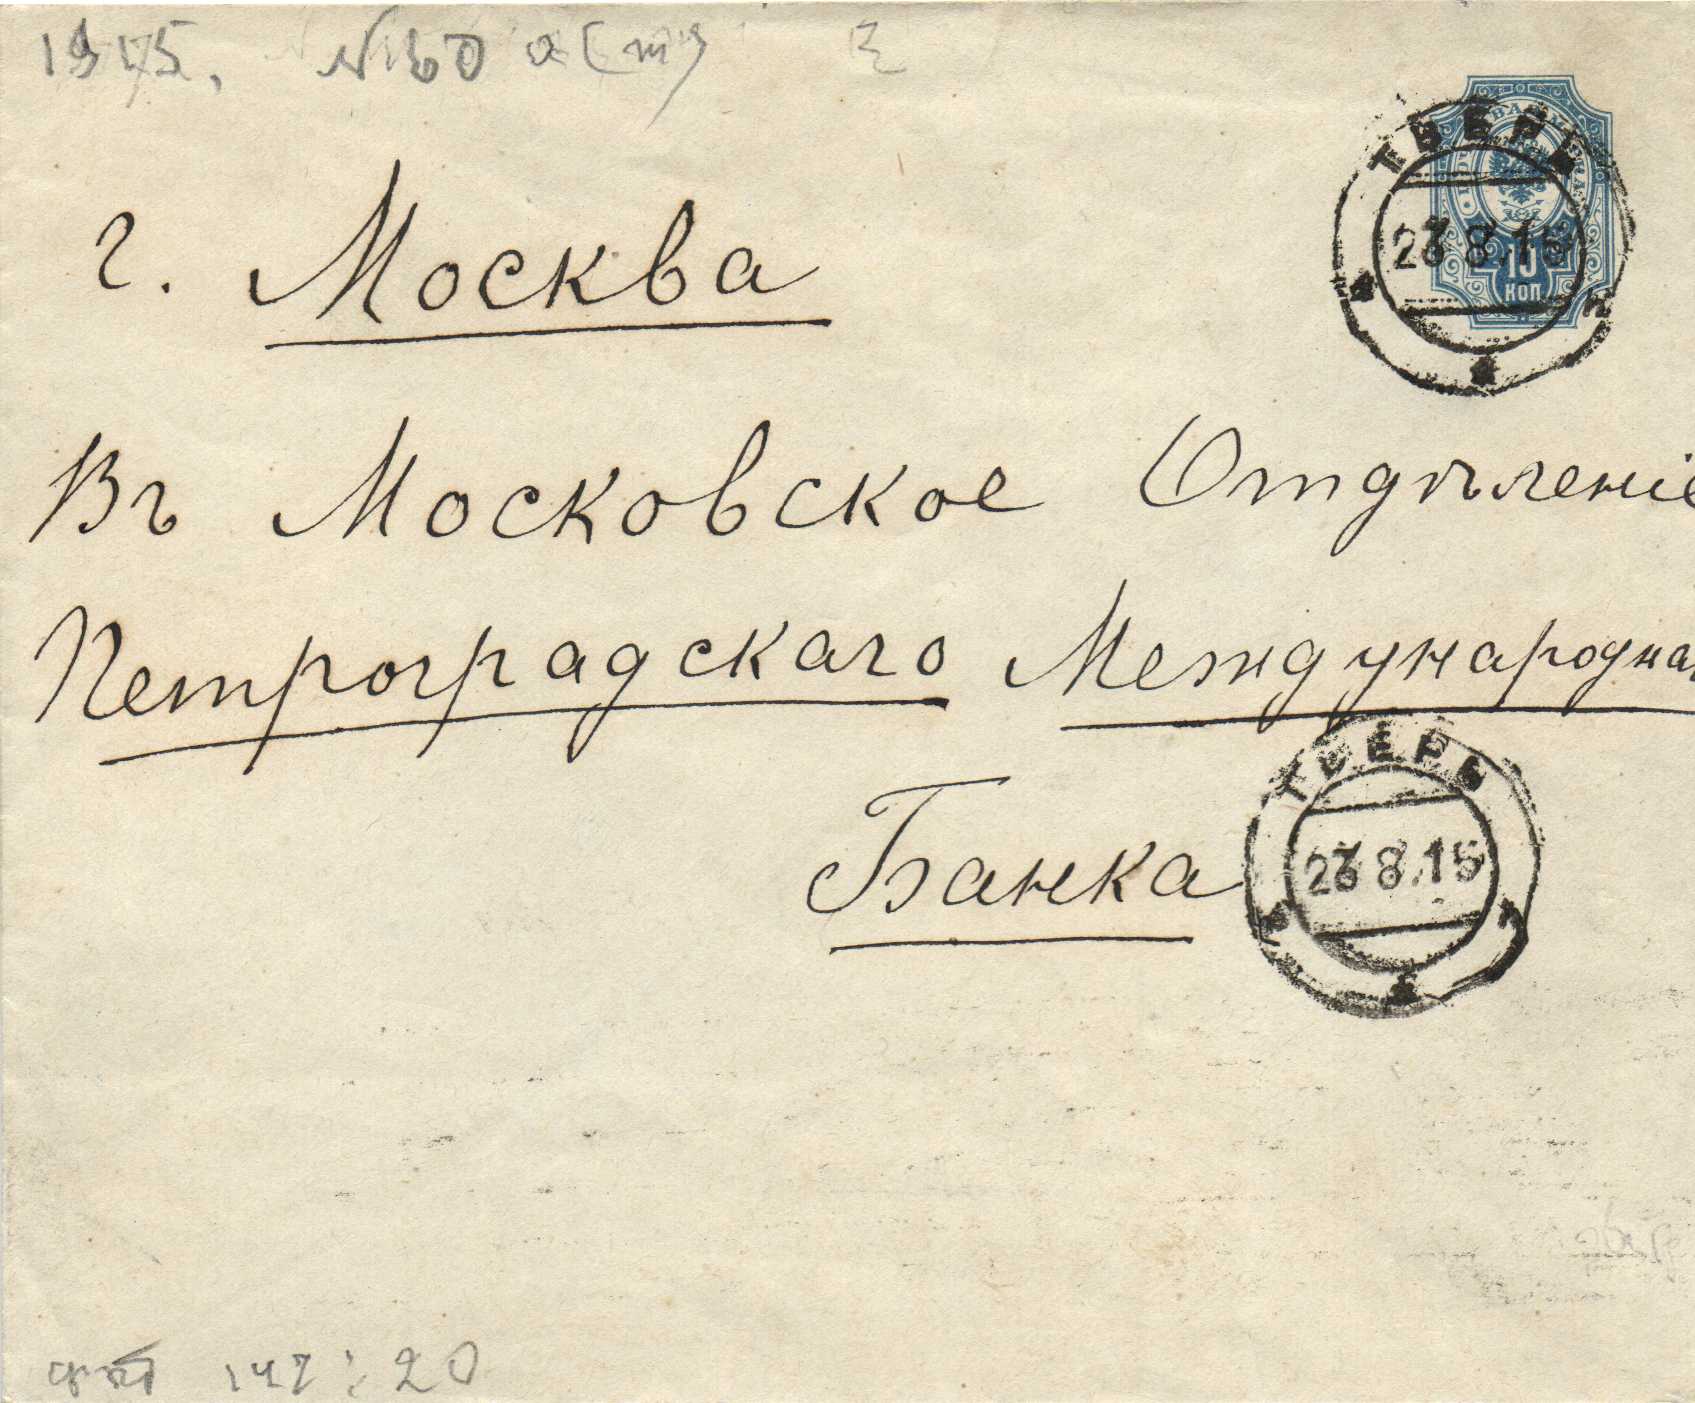 1915. №60
ТВЕРЬ
23.8.15
10
КОП.
г. Москва
Въ Московское Отдѣленіе
Петроградскаго Международна
Банка
ТВЕРЬ
23.8.15
147:20